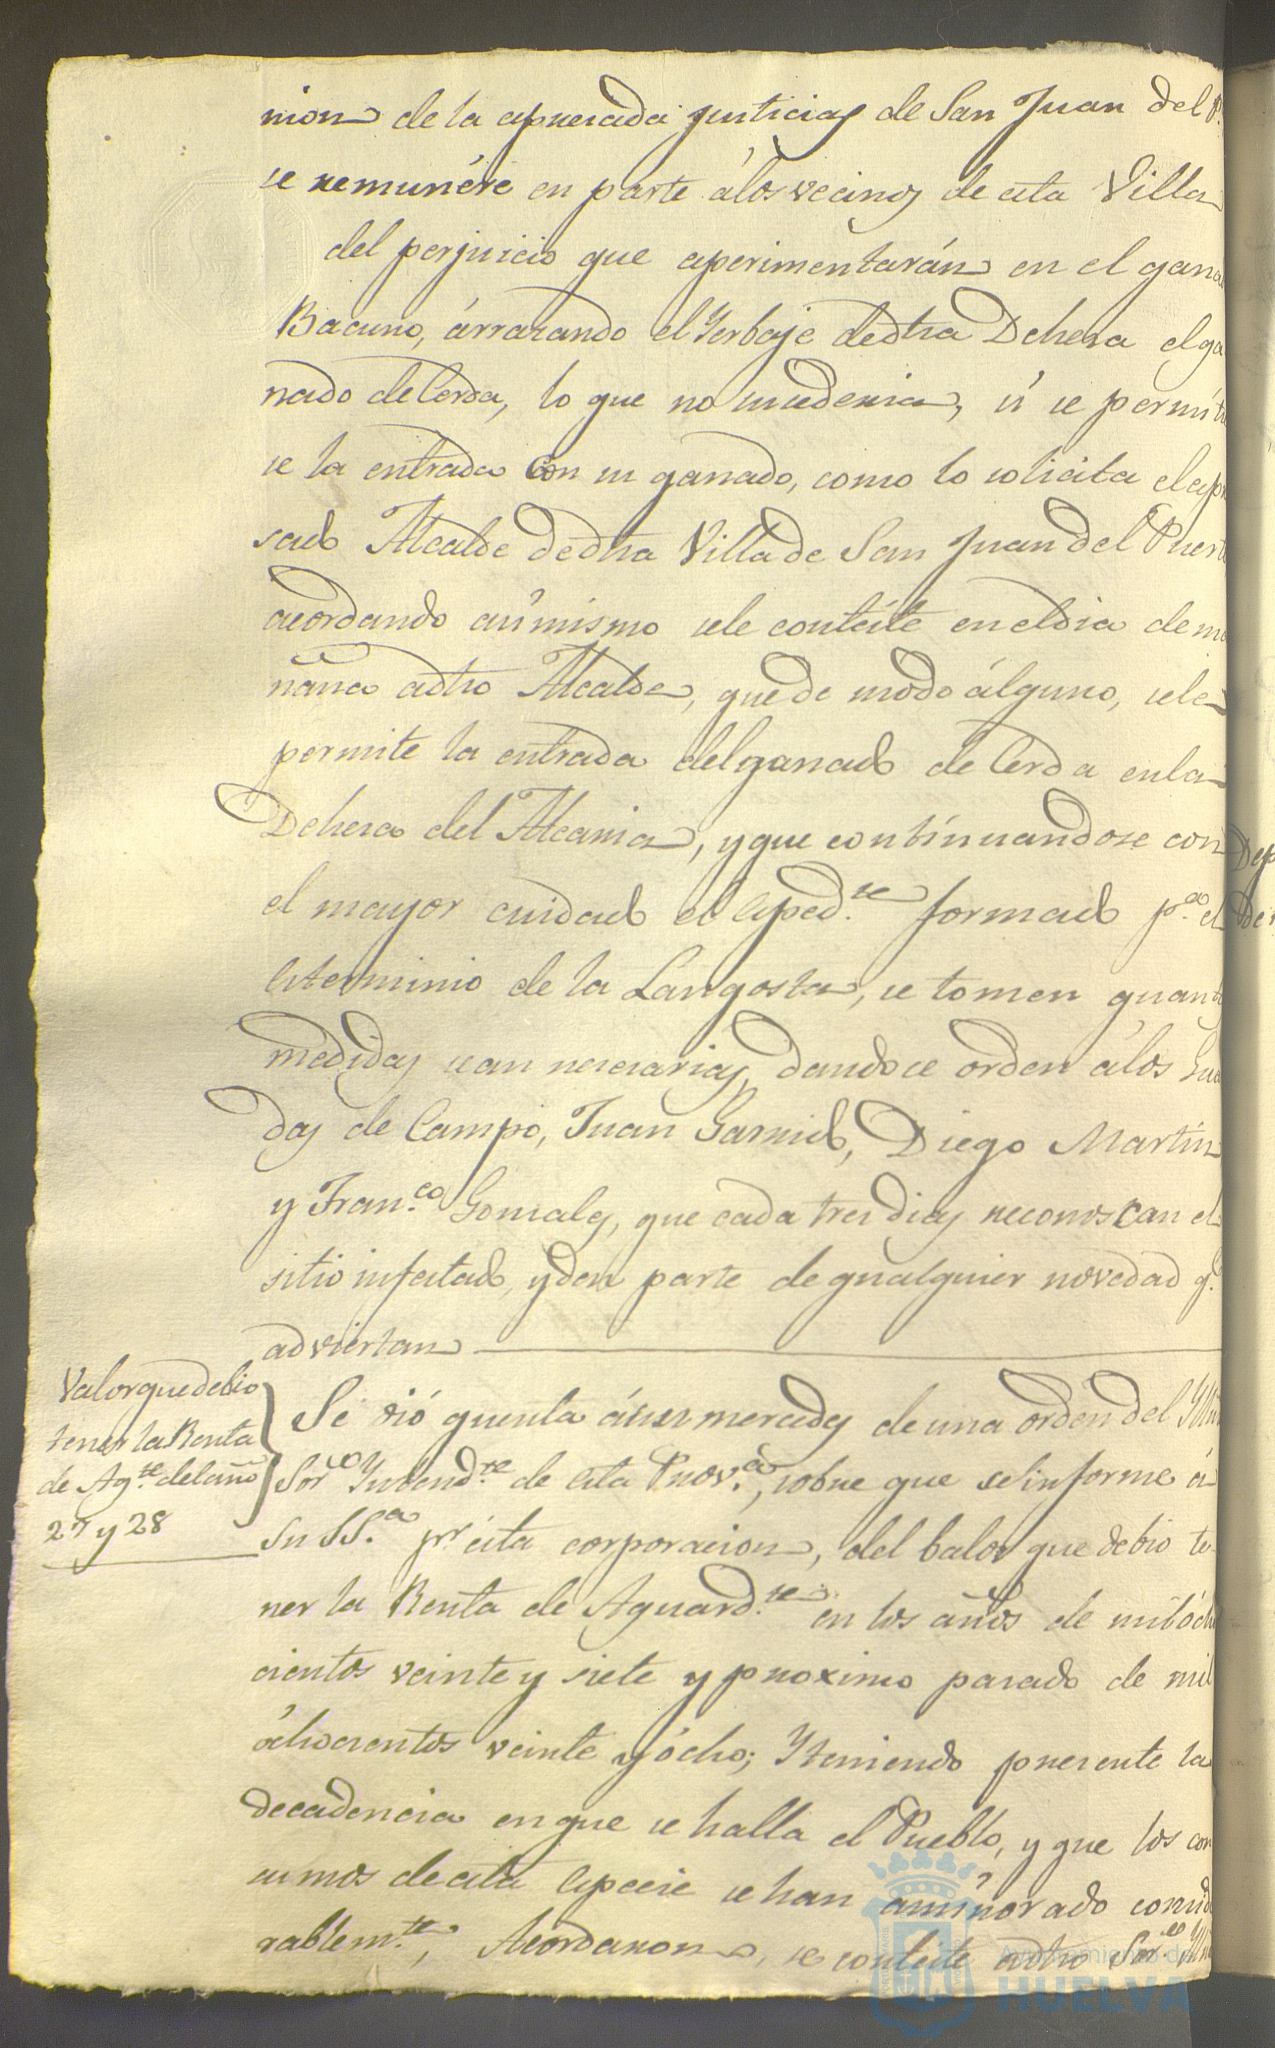 nion de la apresada justicia, de San Juan del P.
se remunére en parte álos vecinos de esta Villa
del perjuicio que esperimentarán en el gana
Bacuno, árrazando el Yerbaje de dha Dehesa el ga
nado de Cerda, lo que no sucederia, si se permiti
se la entrada con su ganado, como lo solicita el espre
sado Alcalde de dha Villa de San Juan del Puert
acordando asi mismo sele contéste en el dia de ma
ñana a dho Alcalde, que de modo álguno, sele
permite la entrada del ganado de Cerda en la
Dehesa del Alcania, y que continuandose con
el mayor cuidado el Esped.te formado p.a el
esterminio de la Langosta, se tomen quant
medidas sean necesarias, dandoce orden álos Gua
das de Campo, Juan Garrido, Diego Martin
y Fran.co Gonsales, que cada tres dias reconoscan el
sitio infestado, y den parte de qualquier novedad q.e
adviertan
Valor que debio
tener la Renta
de Ag.te del año
27 y 28
Se dió quenta ásus mercedes de una orden del Yllm
Sor. Yntend.te de esta Prov.a, sobre que se informe á
Su SS.a pr ésta corporacion, del balor que debio te
ner la Renta de Aguard.te en los años de mil óch
cientos veinte y siete y proximo pasado de mil
óchocientos veinte y ócho; Y teniendo presente la
decadencia en que se halla el Pueblo, y que los con
sumos de esta Especie se han aminorado consid
rablem.te, Acordaron, se contéste a dho Sor. Yllm
Ayuntamiento de
HUELVA